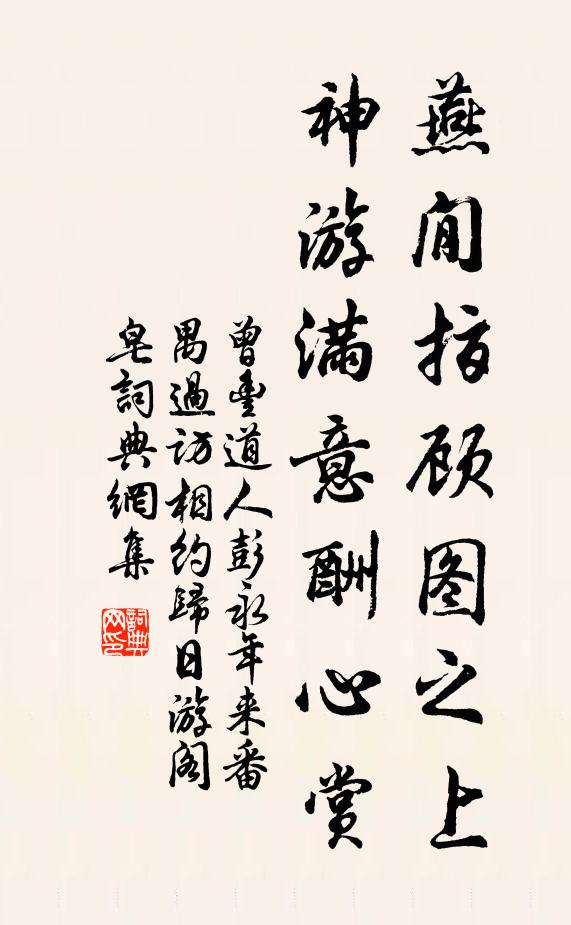 燕閒指顾图之上
神游满意酬心赏
曾豊道人彭永年来番
禺過访相约歸日游阁
皂詞典網集
詞典网印